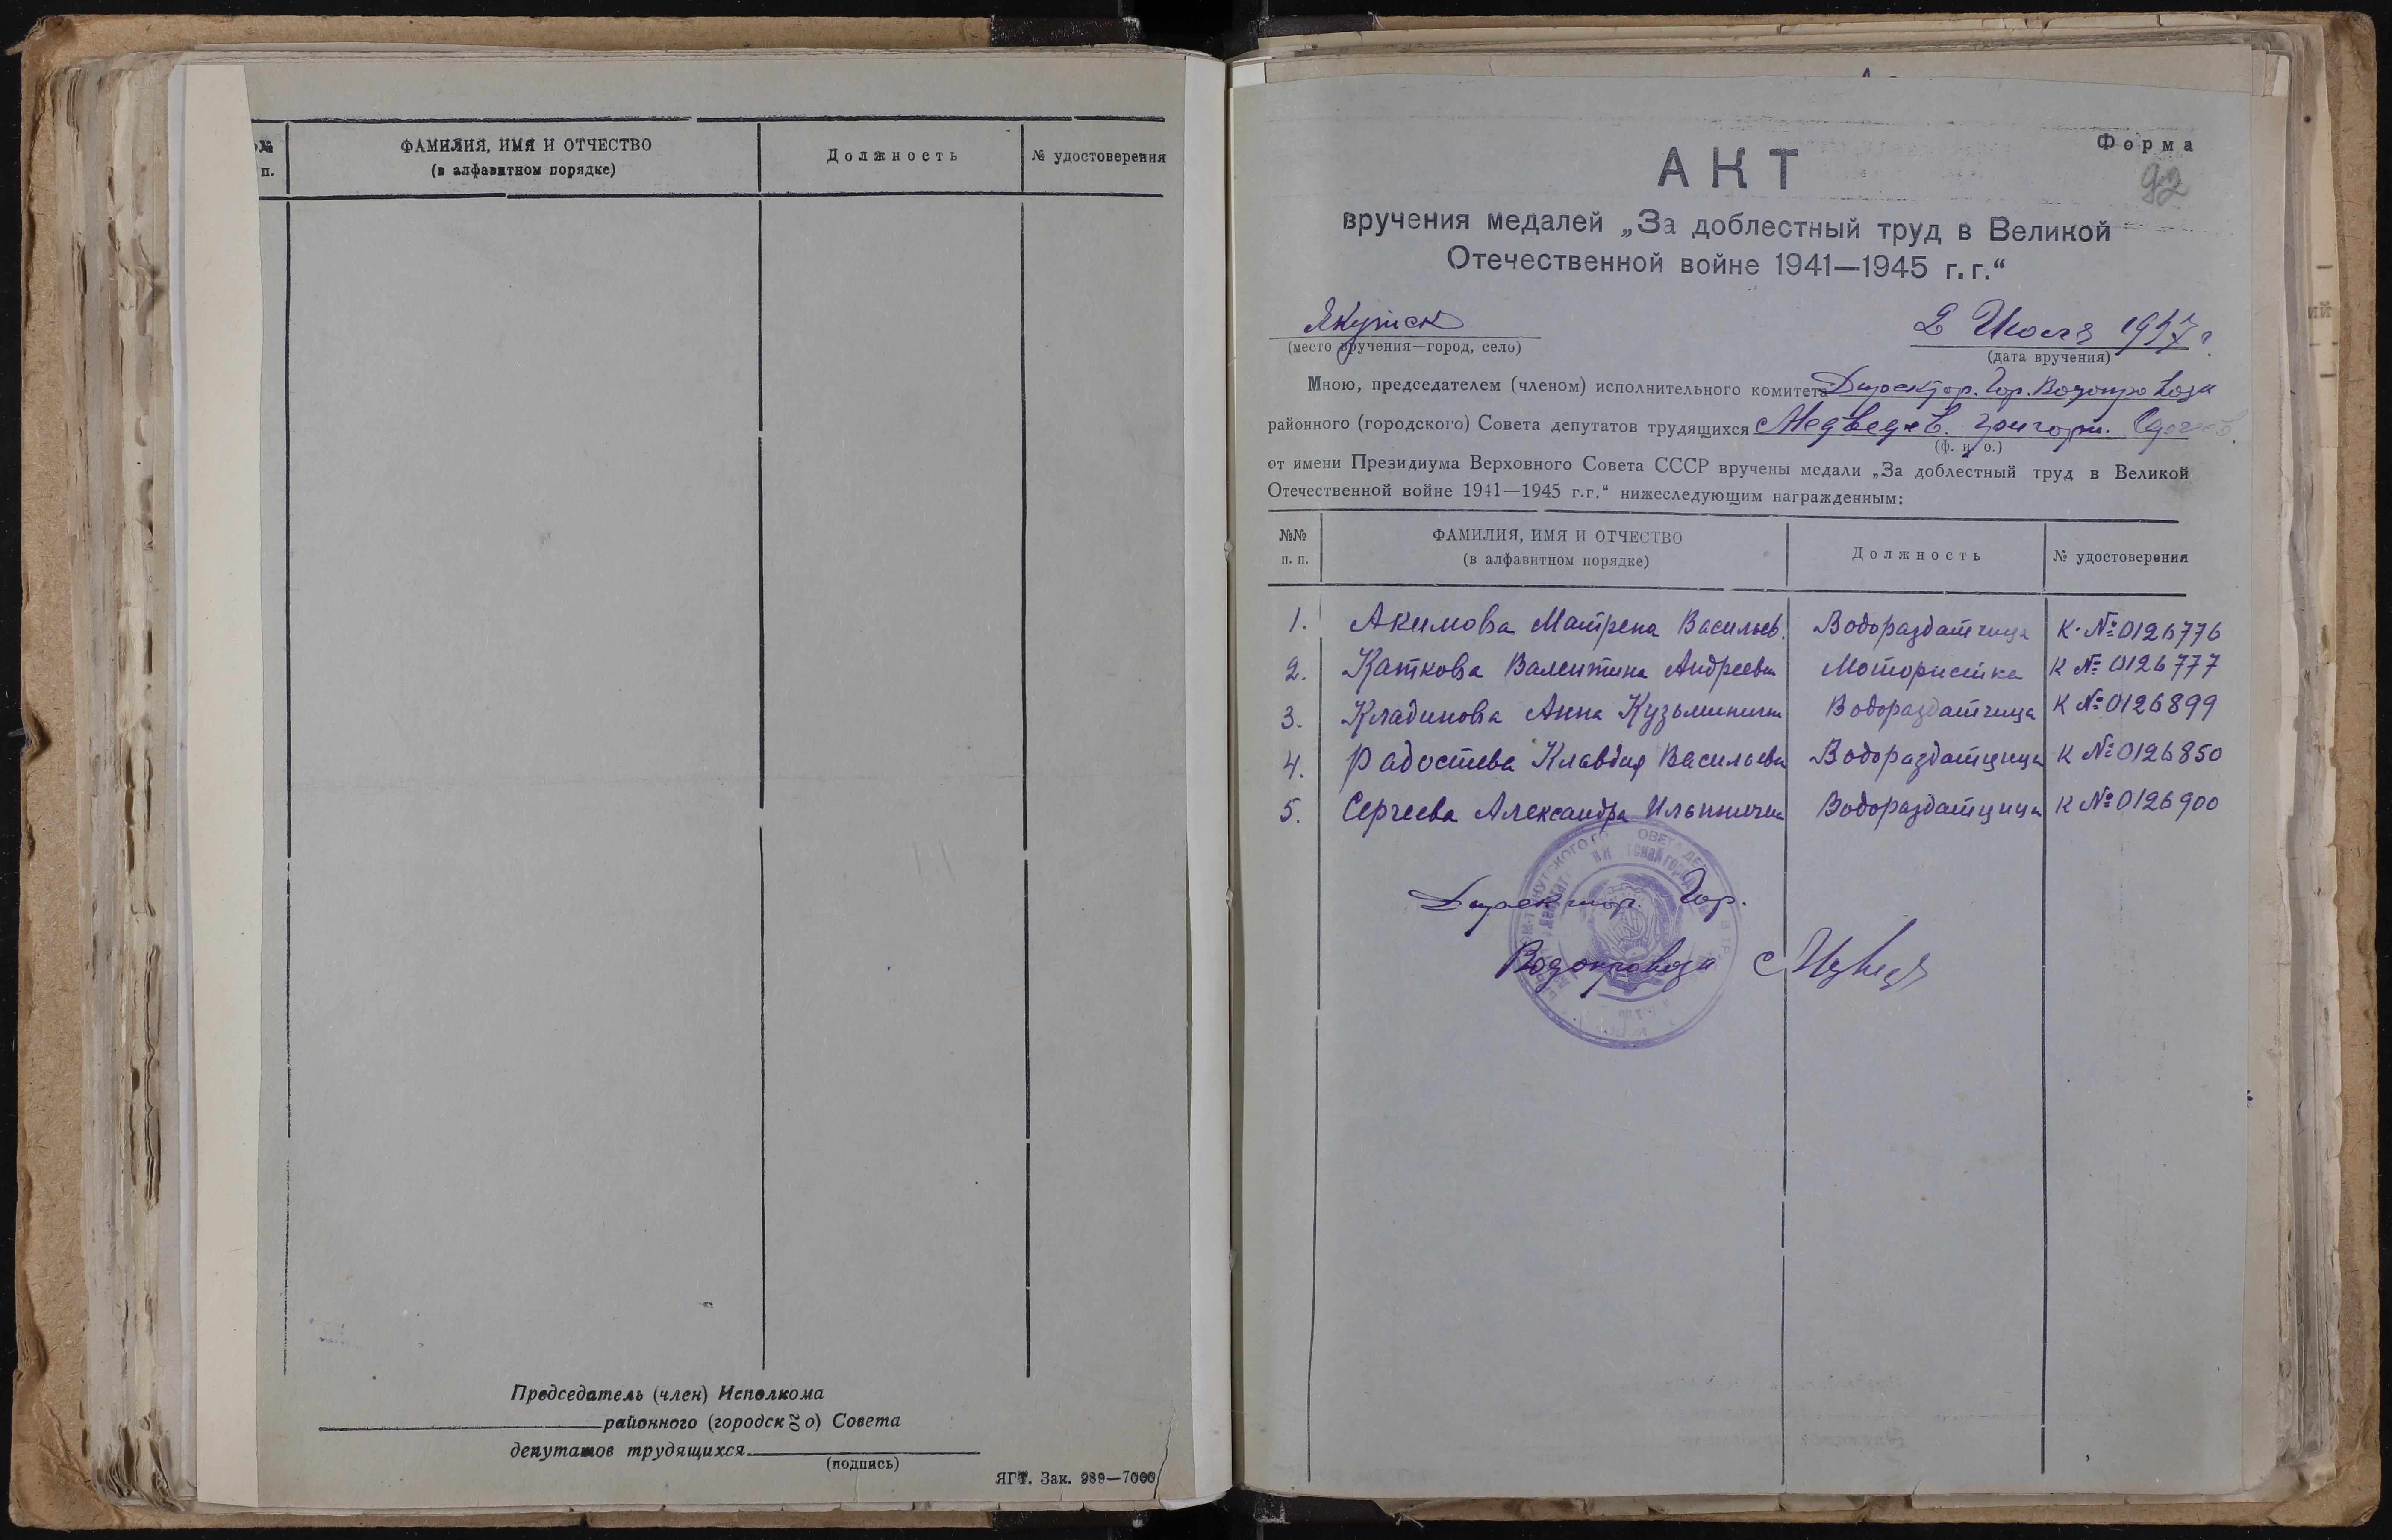 №
п.
ФАМИЛИЯ, ИМЯ И ОТЧЕСТВО
(в алфавитном порядке)
Должность
№ удостоверения
Председатель (член) Исполкома
районного (городского) Совета
депутатов трудящихся
(подпись)
ЯГТ. Зак. 989—7000
Форма
92
АКТ
вручения медалей „За доблестный труд в Великой
Отечественной войне 1941—1945 г.г.“
Якутск
2 Июля 1947 г.
(место вручения—город, село)
(дата вручения)
Мною, председателем (членом) исполнительного комитета Директор. Гор. Водопровода
районного (городского) Совета депутатов трудящихся Медведев. Григорий.
(ф. и. о.)
от имени Президиума Верховного Совета СССР вручены медали „За доблестный труд в Великой
Отечественной войне 1941—1945 г.г.“ нижеследующим награжденным:
№№
п. п.
ФАМИЛИЯ, ИМЯ И ОТЧЕСТВО
(в алфавитном порядке)
Должность
№ удостоверения
1. Акимова Матрена Васильев. Водораздатчица К. № 0126776
2. Каткова Валентина Андреевна Мотористка К № 0126777
3. Кладинова Анна Кузьминична Водораздатчица К № 0126899
4. Радостева Клавдия Васильевна Водораздатцица К № 0126850
5. Сергеева Александра Ильинична Водораздатцица К № 0126900
Директор. Гор.
Водопровода